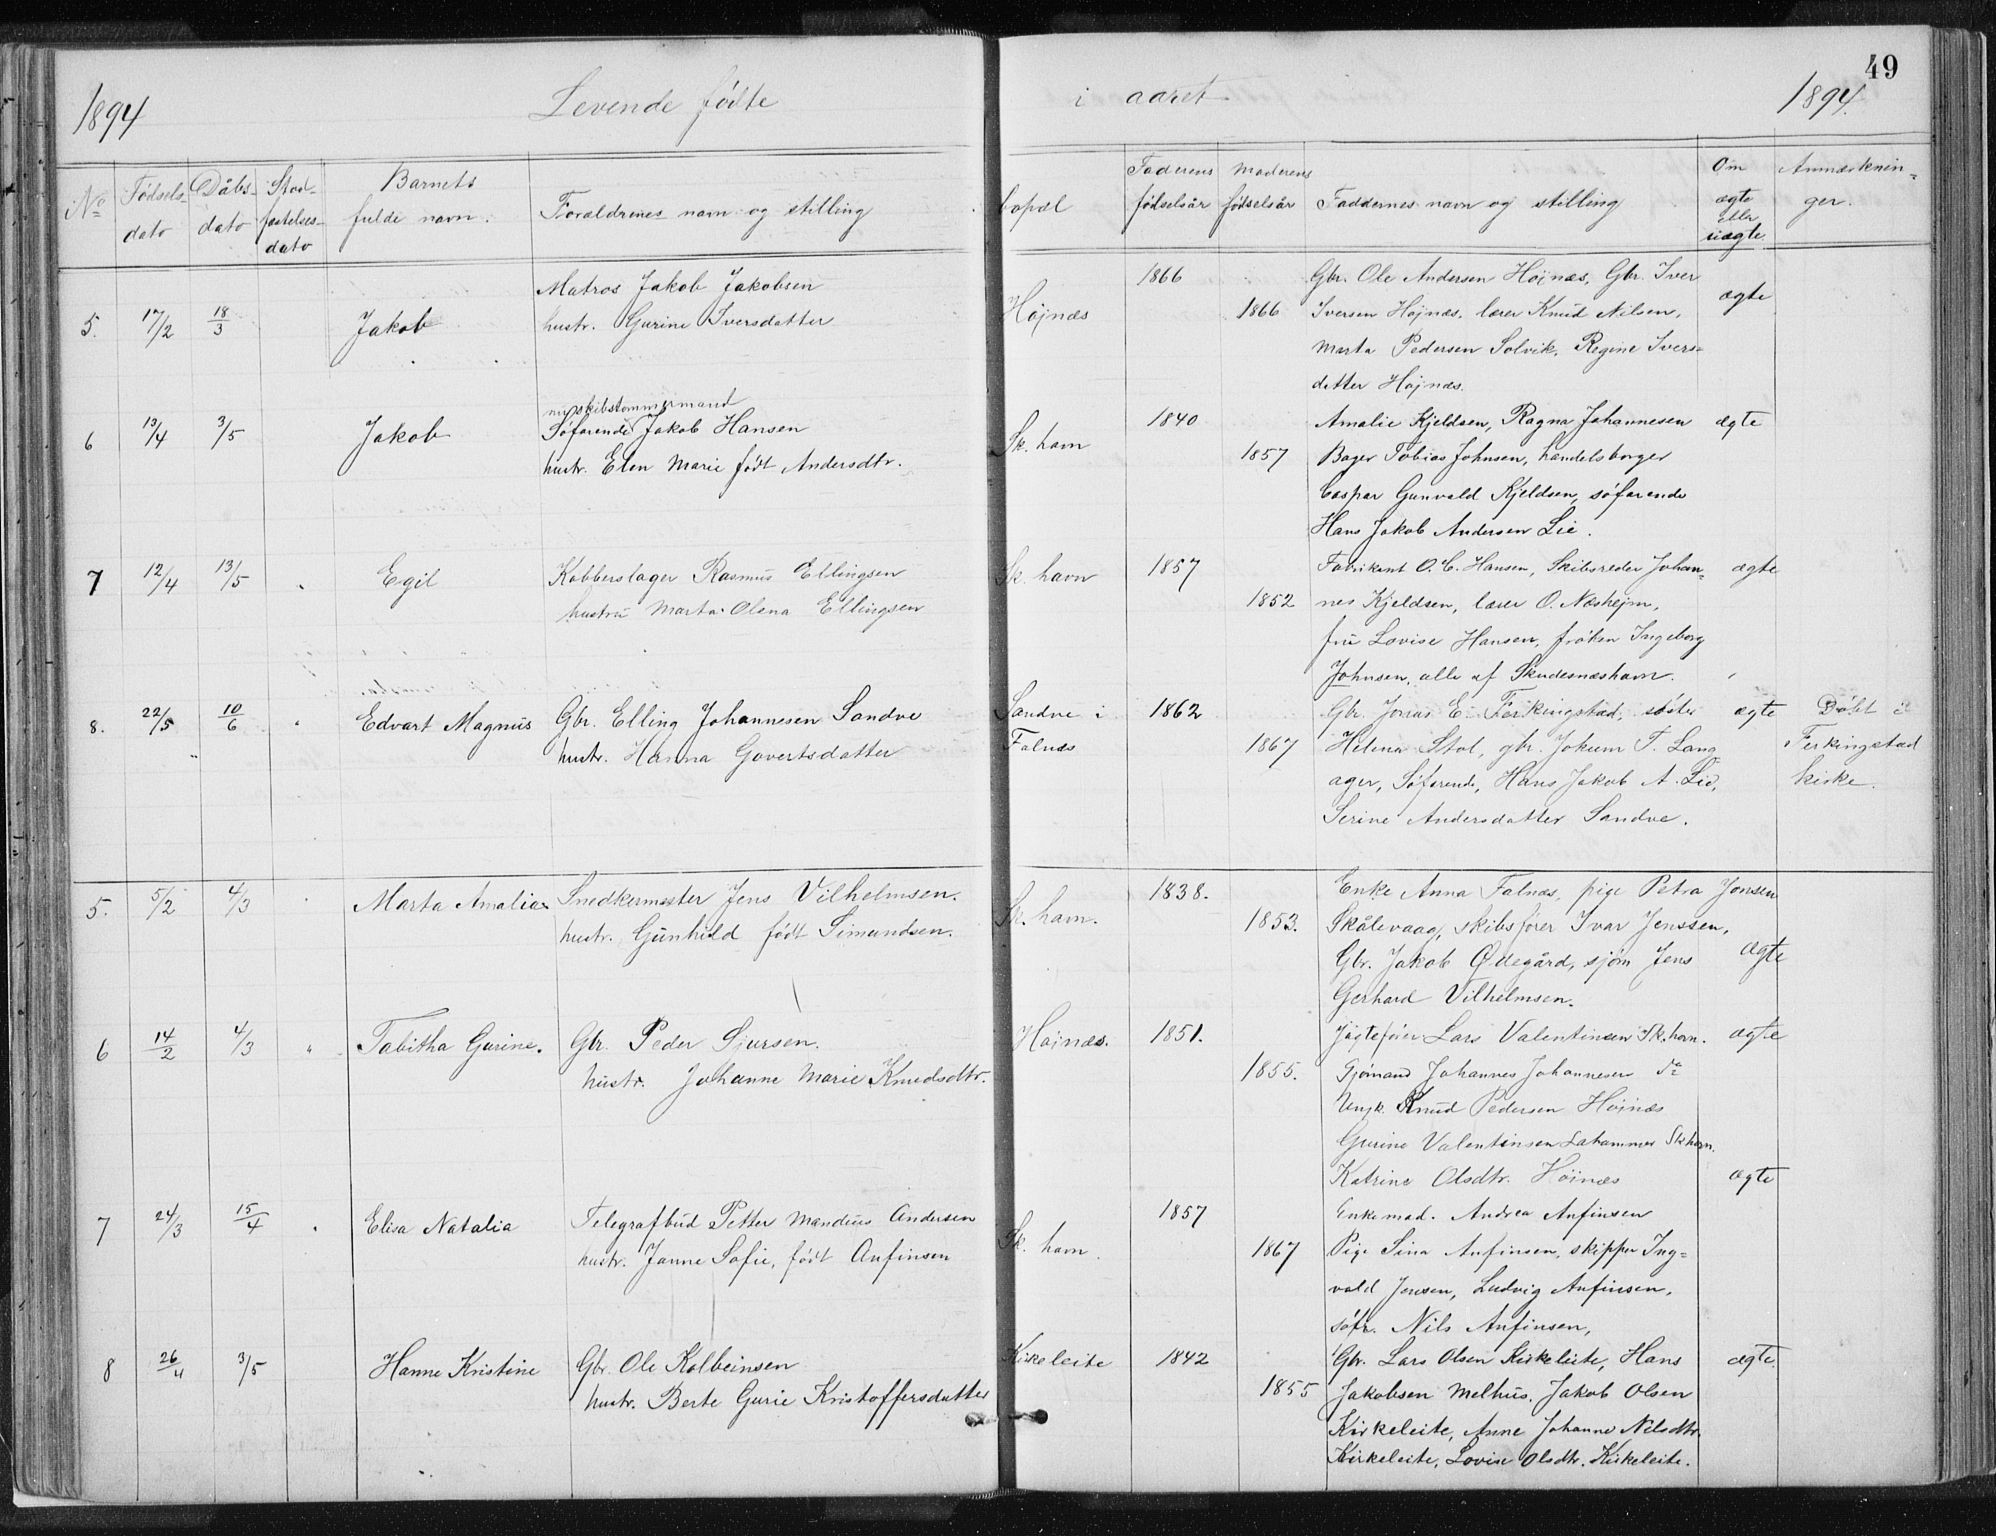 49
1894 Levende fødte i aaret 1894.
No Fødsels- dato Dåbs- dato Stad- fæstelses- dato Barnets fulde navn. Forældrenes navn og stilling bopæl Faderens fødselsår Moderens fødselsår Faddernes navn og stilling Om ægte eller uægte Anmærknin- ger.
5. 17/2 18/3 Jakob
Matros Jakob Jakobsen
hustr. Gurine Iversdatter
Højnæs 1866 1866
Gbr. Ole Andersen Høinæs, Gbr. Iver
Iversen Højnæs, lærer Knud Nilsen,
Marta Pedersen Solvik, Regine Ivers-
datter Højnæs.
ægte
6 13/4 3/5 Jakob
nu skibstømmermand
Søfarende Jakob Hansen
hustr. Elen Marie født Andersdtr.
Sk. havn 1840 1857
Amalie Kjeldsen, Ragna Johannesen
Bager Tobias Johnsen, handelsborger
Caspar Gunvald Kjeldsen, søfarende
Hans Jakob Andersen Lie.
ægte
7 12/4 13/5 Egil
Kobberslager Rasmus Ellingsen
hustru Marta Olena Ellingsen
Sk. havn 1857 1852
Fabrikant O. C. Hansen, Skibsreder Johan-
nes Kjeldsen, lærer O. Næshejm,
fru Lovise Hansen, frøken Ingeborg
Johnsen, alle af Skudesnæshavn.
ægte
8. 22/5 10/6 " Edvart Magnus
Gbr. Elling Johannesen Sandve
hustr. Hanna Govertsdatter
Sandve i
Falnæs
1862 1867
Gbr. Jonas E. Ferkingstad, søster
Helena Stol, gbr. Jokum T. Lang
ager, Søfarende, Hans Jakob A. Lie,
Serine Andersdatter Sandve.
ægte
Døbt i
Ferkingstad
kirke.
5. 5/2 4/3 Marta Amalia
Snedkermester Jens Vilhelmsen.
hustr. Gunhild født Simundsen.
Sk. havn. 1838. 1853.
Enke Anna Falnæs, pige Petra Jonsen
Skålevaag, skibsfører Ivar Jenssen,
Gbr. Jakob Ødegård, sjøm Jens
Gerhard Vilhelmsen.
ægte
6 14/2 4/3 " Tabitha Gurine.
Gbr. Peder Sjursen.
hustr. Johanne Marie Knudsdtr.
Høinæs. 1851. 1855.
Jøgtefører Lars Valentinsen Sk. havn.
Sjømand Johannes Johannesen do
Ungk. Knud Pedersen Høinæs
Gurine Valentinsen Lahammer Sk havn.
Katrine Olsdtr. Høinæs
ægte
7 24/3 15/4 " Elisa Natalia
Telegrafbud Petter Mandius Andersen
hustr. Janne Sofie, født Anfinsen
Sk. havn. 1857 1867
Enkemad. Andrea Anfinsen
Pige Sina Anfinsen, skipper Ing-
vald Jensen, Ludvig Anfinsen,
søfr. Nils Anfinsen,
ægte
8 26/4 3/5 Hanne Kristine
Gbr Ole Kolbeinsen
hustr. Berte Gurie Kristoffersdatter
Kirkeleite 1842 1855
Gbr. Lars Olsen Kirkeleite, Hans
Jakobsen Melhus, Jakob Olsen
Kirkeleite, Anne Johanne Nilsdtr.
Kirkeleite, Lovise Olsdtr. Kirkeleite.
ægte